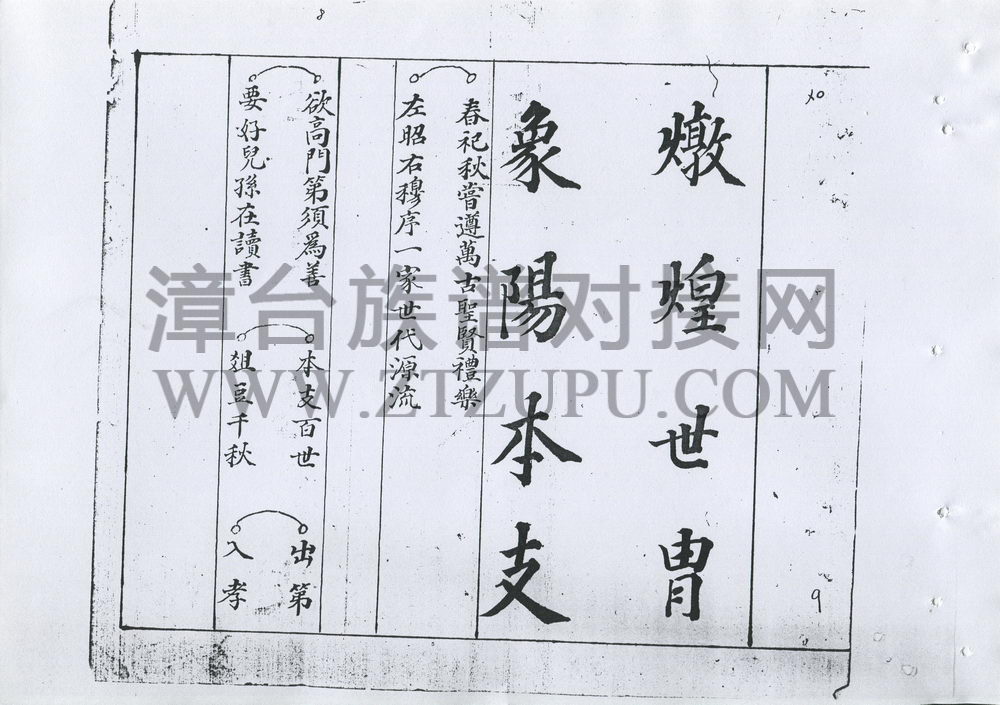 燉煌世胄
象陽本支
春祀秋嘗遵萬古聖賢禮樂
左昭右穆序一家世代源流
欲高門第須為善
要好兒孫在讀書
本支百世
俎豆千秋
出第
入孝
漳台族谱对接网
WWW.ZTZUPU.COM
8
9